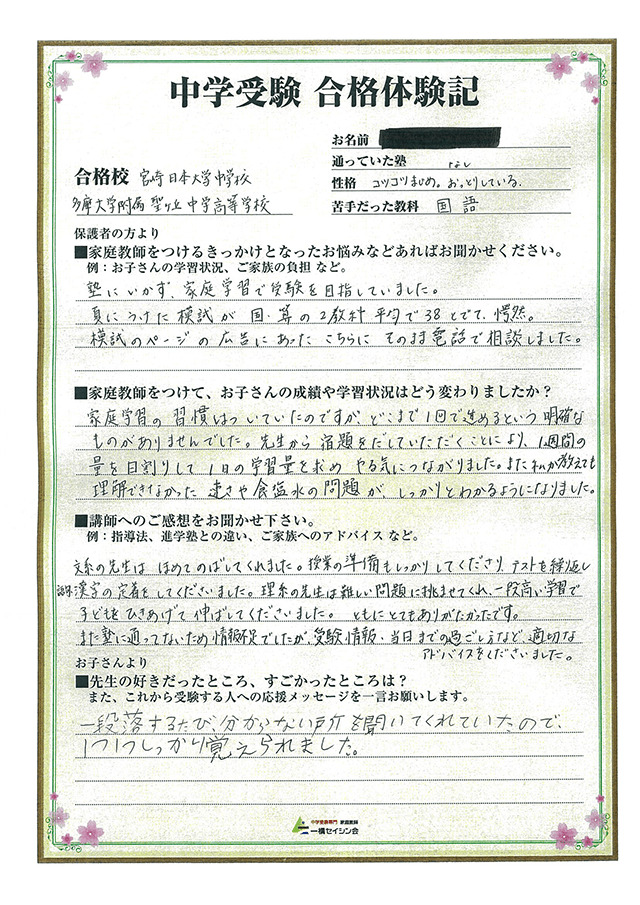 中学受験 合格体験記
お名前
通っていた塾 なし
合格校 宮崎日本大学中学校
性格 コツコツまじめ。おっとりしている。
多摩大学附属聖ヶ丘中学高等学校
苦手だった教科 国語
保護者の方より
■家庭教師をつけるきっかけとなったお悩みなどあればお聞かせください。
例：お子さんの学習状況、ご家族の負担 など。
塾にいかず、家庭学習で受験を目指していました。
夏にうけた模試が国・算の2教科平均で38とでて、愕然。
模試のページの広告にあったこちらにそのまま電話で相談しました。
■家庭教師をつけて、お子さんの成績や学習状況はどう変わりましたか？
家庭学習の習慣はついていたのですが、どこまで1回で進めるという明確な
ものがありませんでした。先生から宿題をだしていただくことにより、1週間の
量を日割りして1日の学習量を求めやる気につながりました。また私が教えても
理解できなかった速さや食塩水の問題が、しっかりとわかるようになりました。
■講師へのご感想をお聞かせ下さい。
例：指導法、進学塾との違い、ご家族へのアドバイス など。
文系の先生はほめてのばしてくれました。授業の準備もしっかりしてくださり、テストを繰り返し
漢字の定着をしてくださいました。理系の先生は難しい問題に挑ませてくれ、一段高い学習で
子どもをひきあげて伸ばしてくださいました。ともにとてもありがたかったです。
また塾に通ってないため情報不足でしたが、受験情報・当日までの過ごし方など、適切な
アドバイスをくださいました。
お子さんより
■先生の好きだったところ、すごかったところは？
また、これから受験する人への応援メッセージを一言お願いします。
一段落するたび、分からない所を聞いてくれていたので、
1つ1つしっかり覚えられました。
中学受験専門 家庭教師
一橋セイシン会